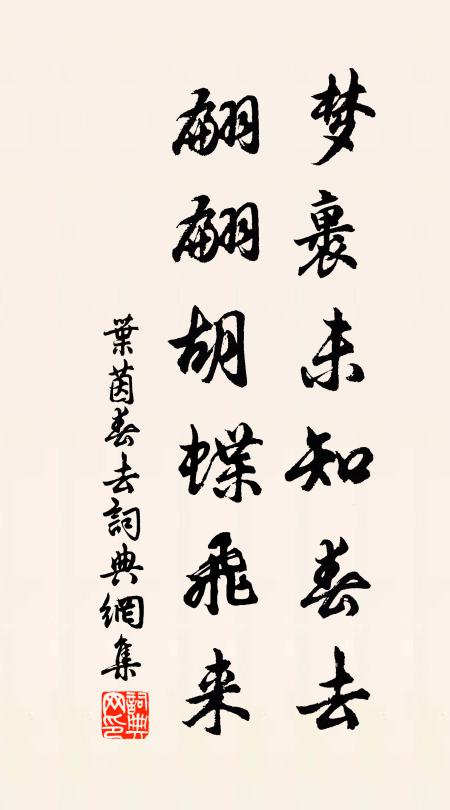 梦裏未知春去
翩翩胡蝶飛来
葉茵春去詞典網集
詞典网印